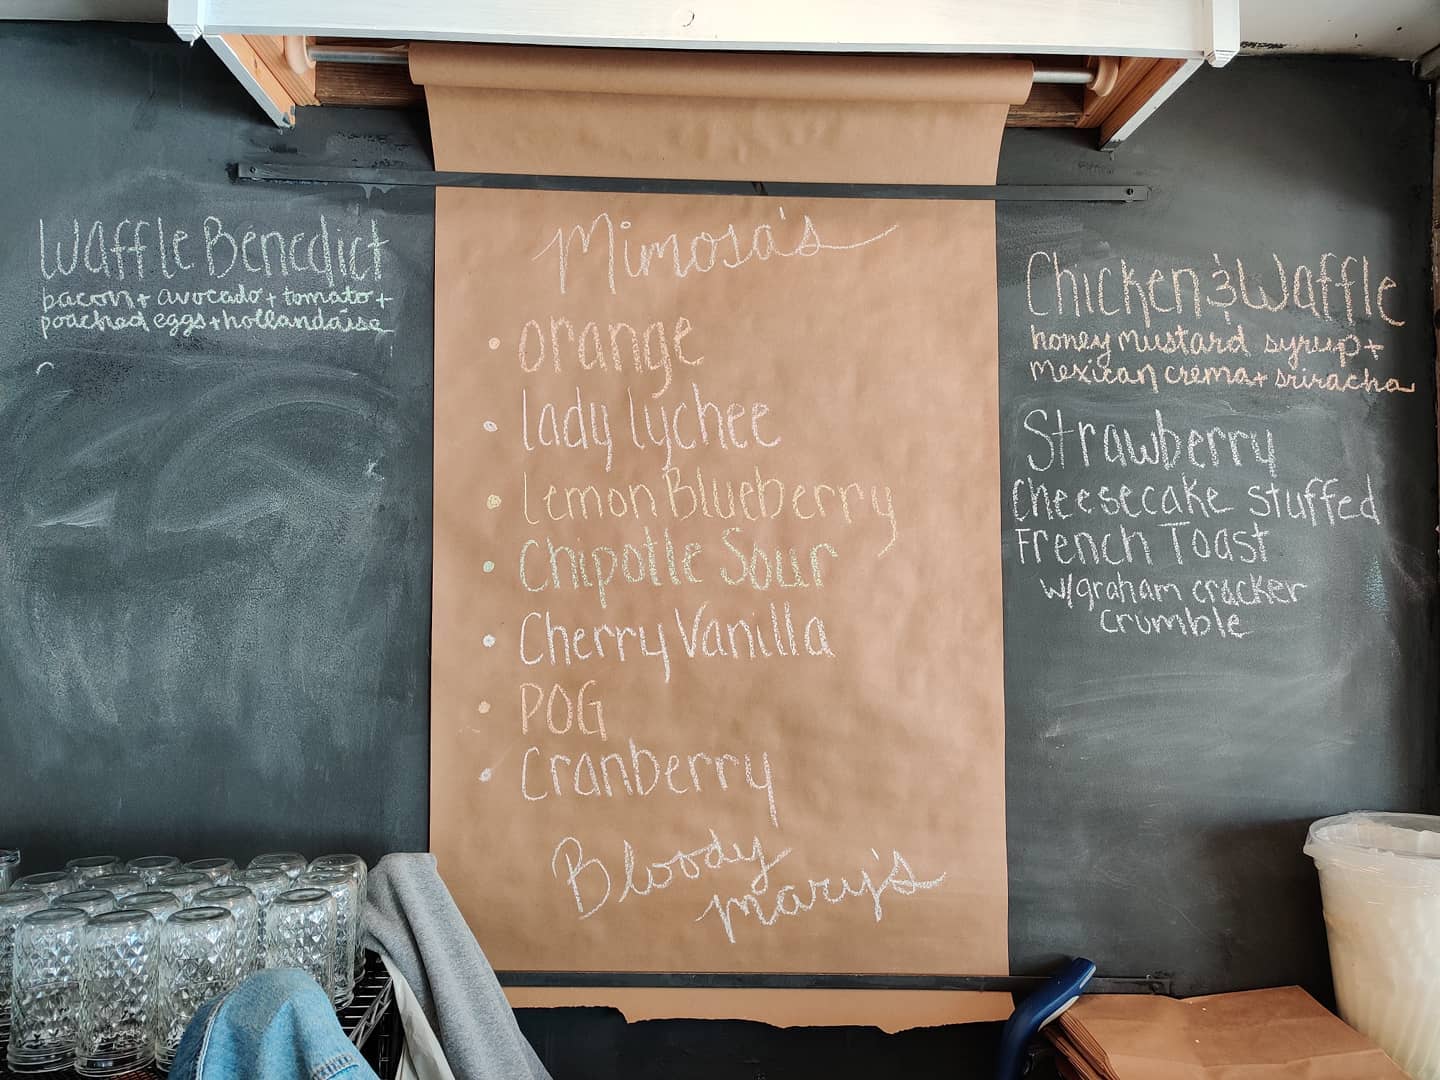 Waffle Benedict
bacon + avocado + tomato +
poached eggs + hollandaise
Mimosa's
• orange
• lady lychee
• Lemon Blueberry
• Chipotle Sour
• Cherry Vanilla
• POG
• Cranberry
Bloody
mary's
Chicken & Waffle
honey mustard syrup +
mexican crema + sriracha
Strawberry
Cheesecake stuffed
French Toast
w/graham cracker
crumble